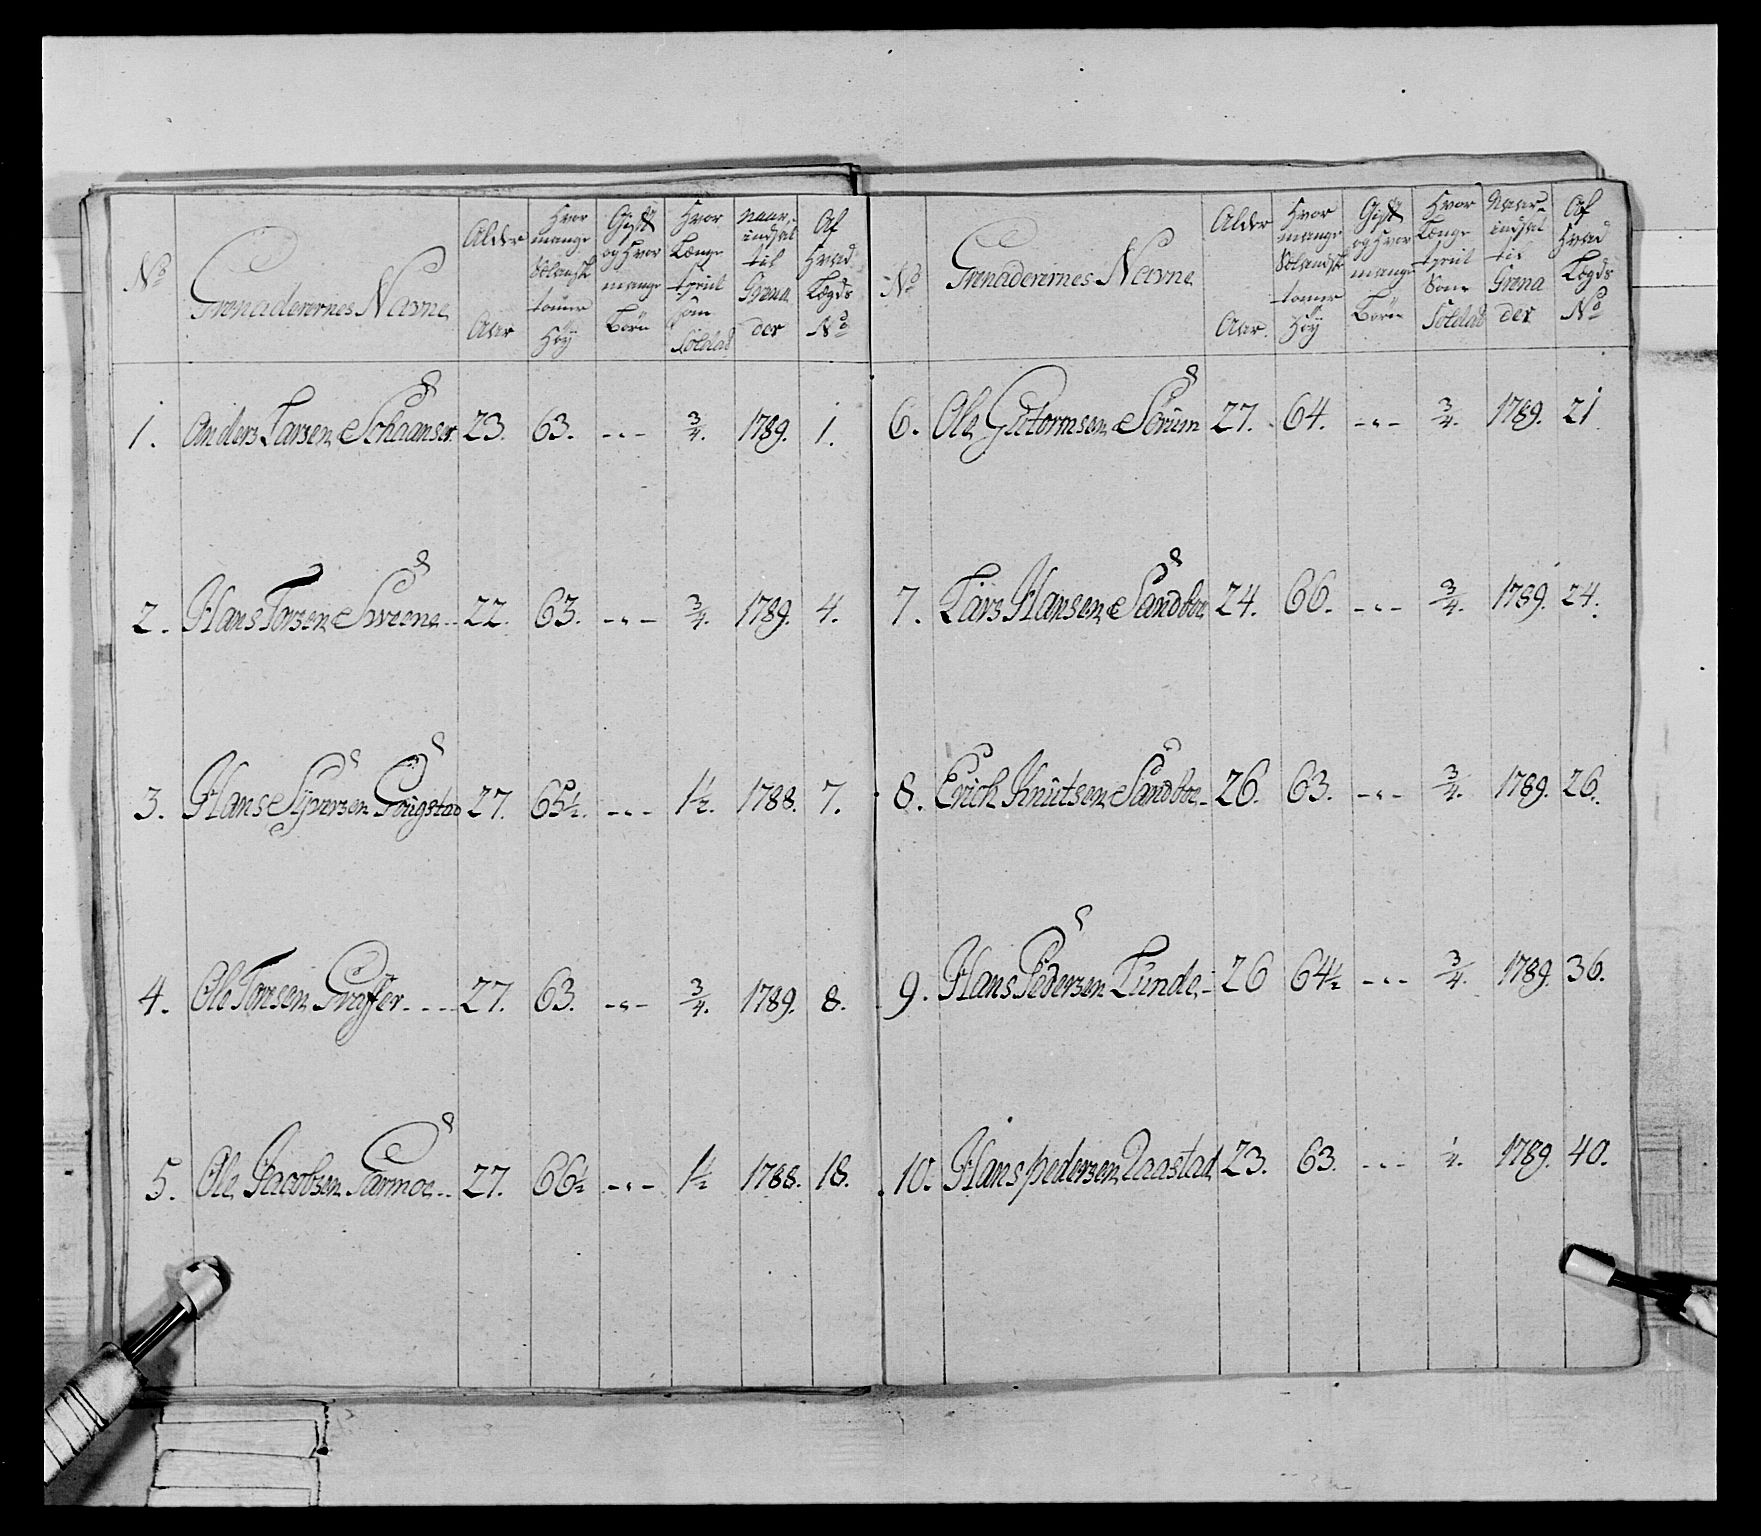 No
Grenaderernes Navne
Alder
Aar
Hvor
mange
Sælansk
tomer
Høy
Gift
og Hvor
mange
Børn
Hvor
Længe
tient
som
Soldat
Naar
indsat
til
Grena
der
Af
Hvad
Lægds
No
1. Anders Larsen 23. 63. -"- 3/4. 1789. 1.
2. Hans Torsen Sveene 22. 63. -"- 3/4. 1789. 4.
3. Hans Syversen Gougstad 27. 65½. -"- 1½. 1788. 7.
4. Ole Torsen Graffer 27. 63. -"- 3/4. 1789. 8.
5. Ole Jacobsen Garmoe 27. 66½ -"- 1½ 1788. 18.
No
Grenaderernes Navne
Alder
Aar.
Hvor
mange
Sælandsk
tomer
Høy
Gift
og Hvor
mange
Børn
Hvor
Længe
tient
Som
Soldat
Naar
indsat
til
Grena
der
Af
Hvad
Lægds
No
6. Ole Gutormsen Sørum 27. 64. -"- 3/4. 1789. 21
7. Lars Hansen Sandboe 24. 66. -"- 3/4. 1789. 24.
8. Erich Knutsen Sandboe 26. 63. -"- 3/4. 1789. 26.
9. Hans Pedersen Lunde 26 64½ -"- 3/4. 1789. 36.
10. Hans pedersen Aastad 23. 63. -"- 1789. 40.